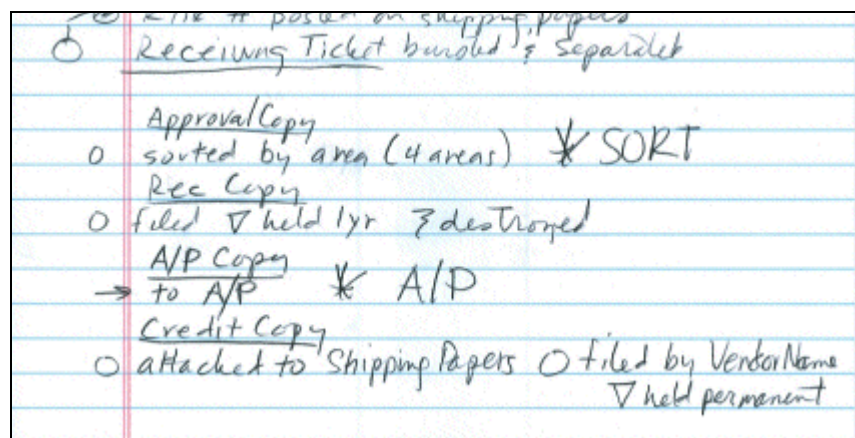 # posted on shipping papers
Receiving Ticket bursted & Separated
Approval Copy
○ sorted by area (4 areas) * SORT
Rec Copy
○ filed ▽ held 1yr & destroyed
A/P Copy
→ to A/P * A/P
Credit Copy
○ attached to Shipping Papers ○ filed by Vendor Name
▽ held permanent